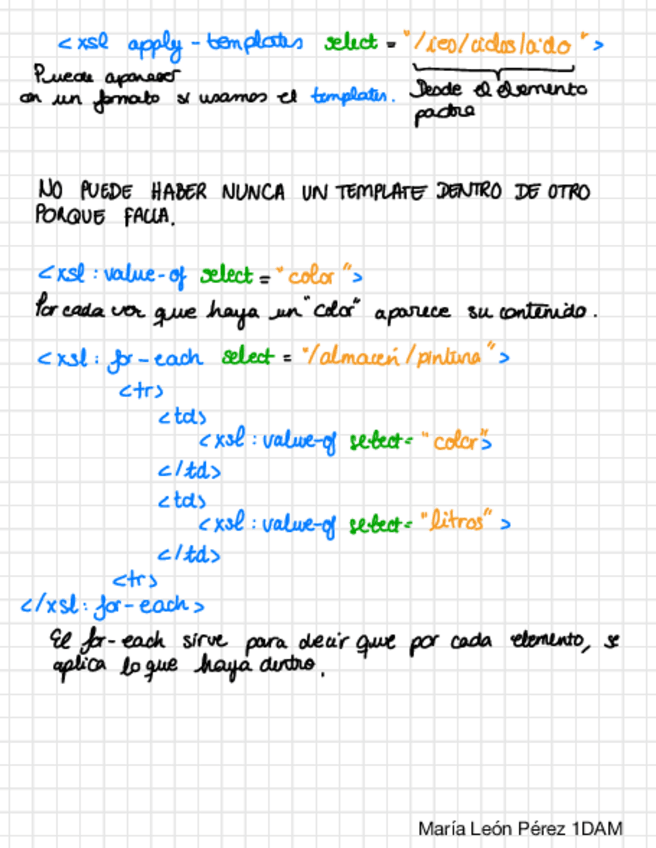 <xsl apply-templates select = "/ies/ciclos/ciclo">
Puede aparecer
en un formato si usamos el templates. Desde el elemento
padre
NO PUEDE HABER NUNCA UN TEMPLATE DENTRO DE OTRO
PORQUE FALLA.
<xsl : value-of select = "color">
Por cada vez que haya un "color" aparece su contenido.
<xsl : for-each select = "/almacén/pintura">
<tr>
<td>
<xsl : value-of select= "color">
</td>
<td>
<xsl : value-of select= "litros" >
</td>
<tr>
</xsl: for-each>
El for-each sirve para decir que por cada elemento, se
aplica lo que haya dentro.
María León Pérez 1DAM